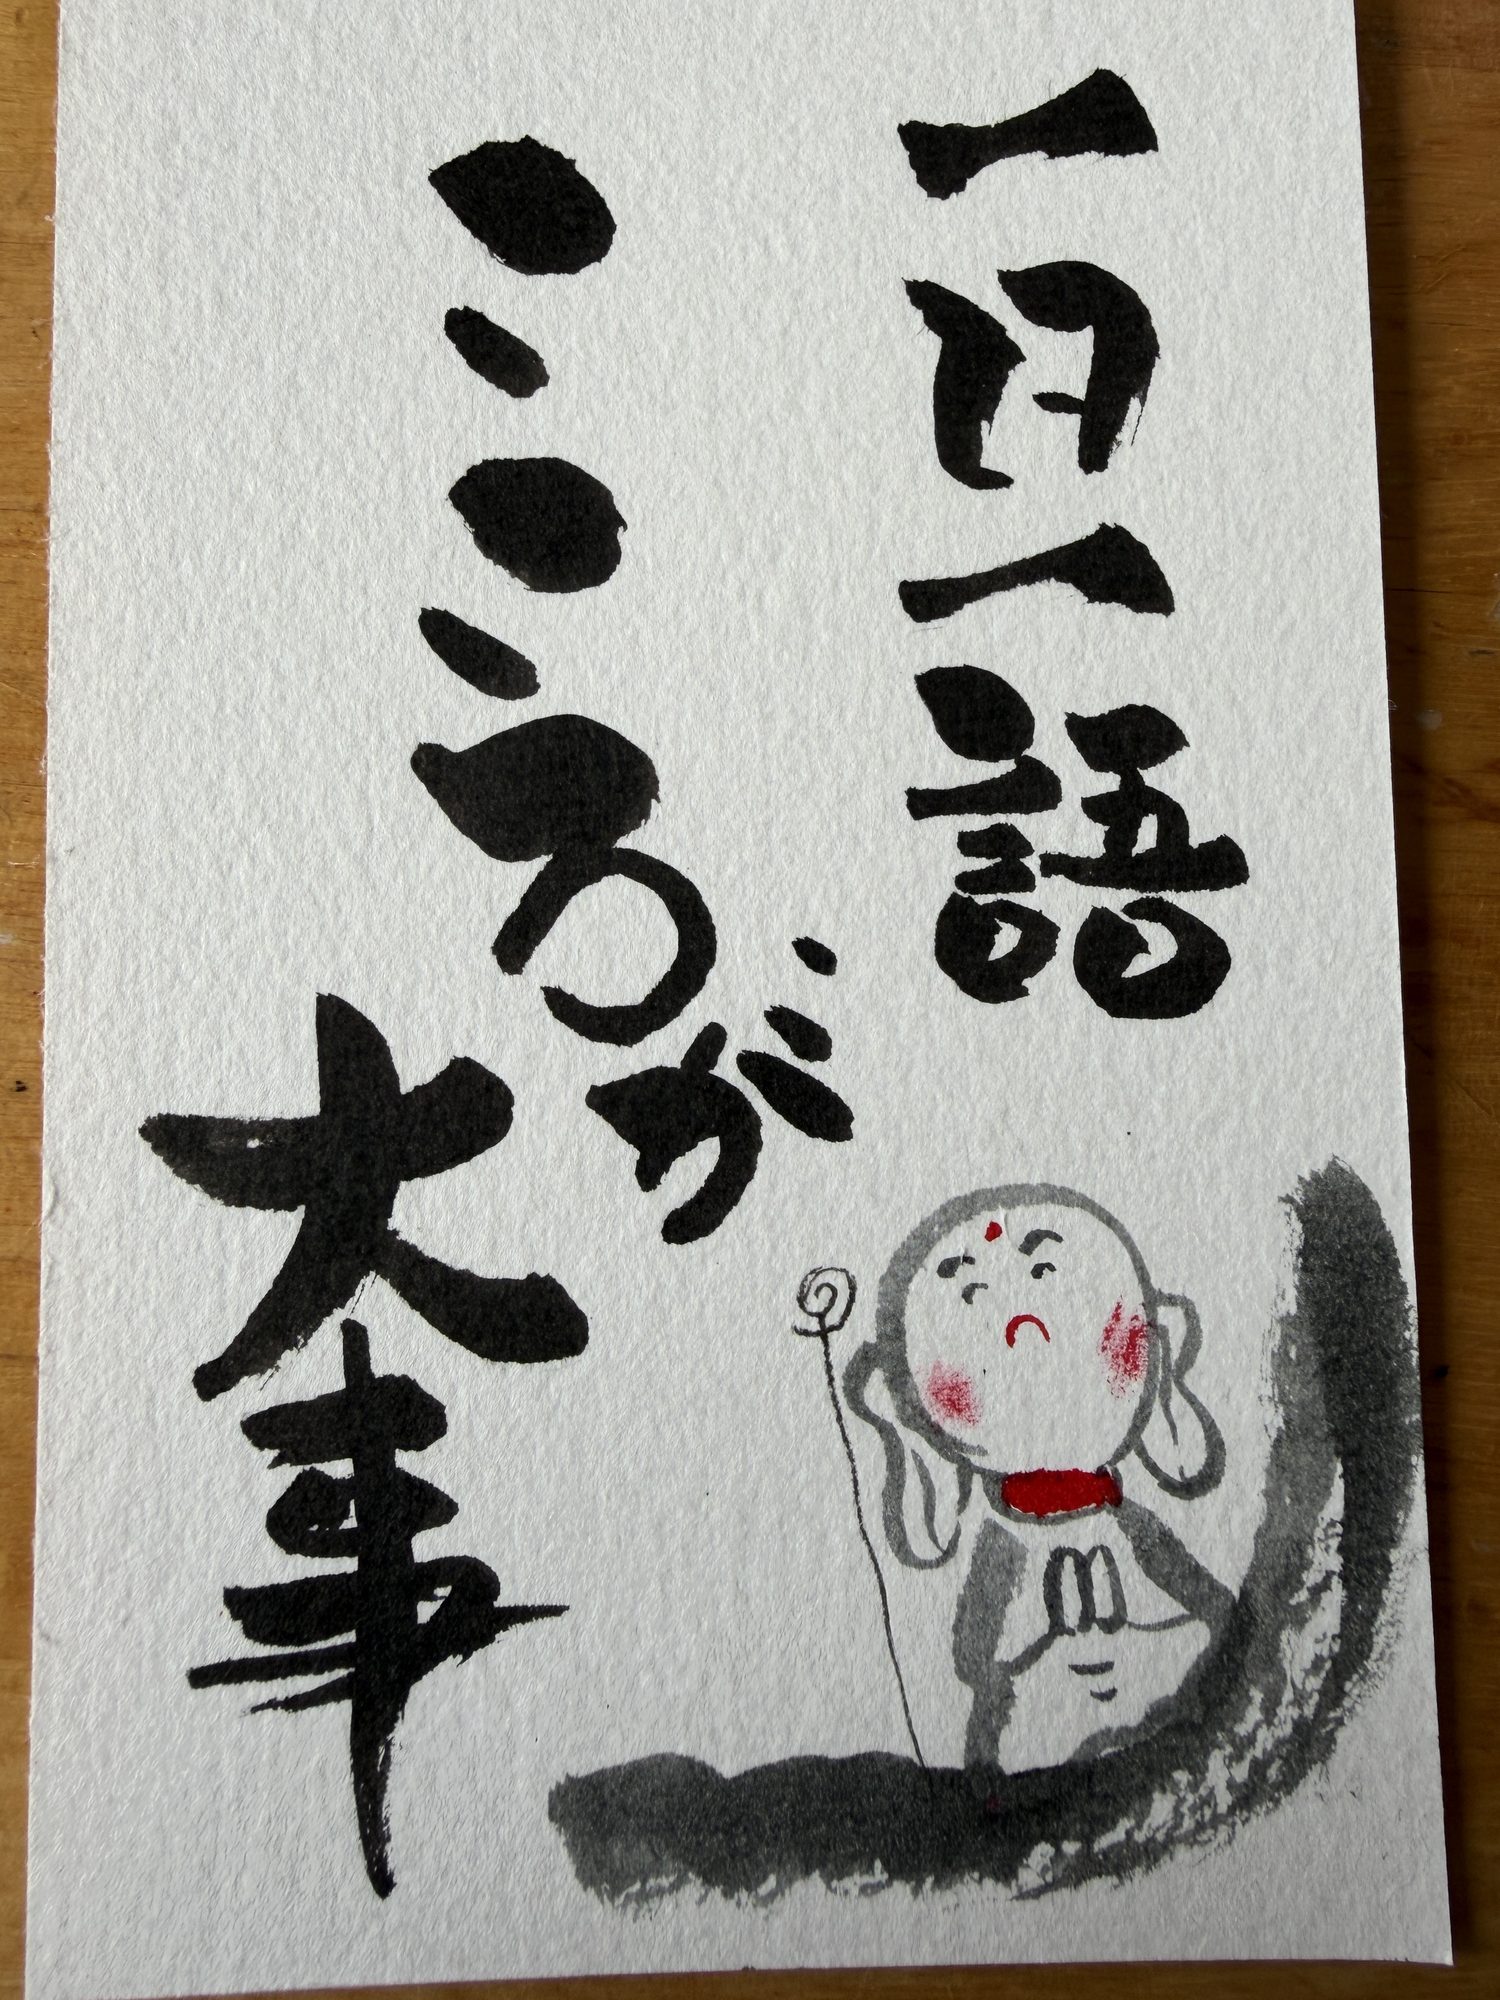 一日一語
こころが
大事